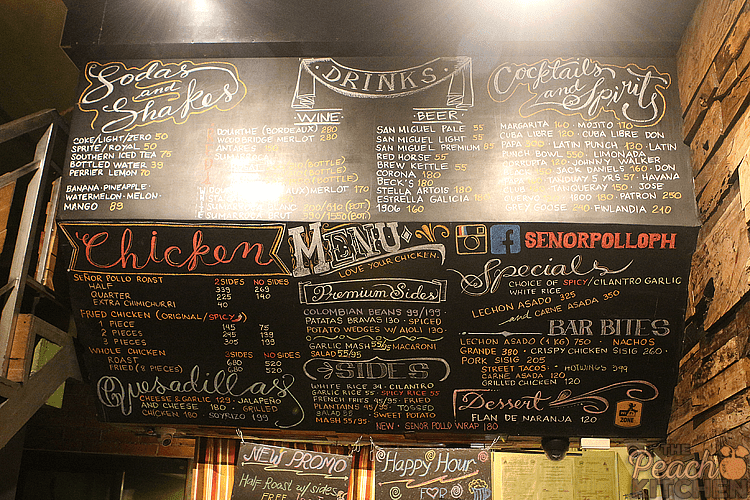 Sodas
and
Shakes
COKE/LIGHT/ZERO 50
SPRITE/ROYAL 50
SOUTHERN ICED TEA 75
BOTTLED WATER 39
PERRIER LEMON 70
BANANA · PINEAPPLE ·
WATERMELON · MELON ·
MANGO 89
DRINKS
WINE
DOURTHE (BORDEAUX) 280
WOODBRIDGE MERLOT 280
(BOTTLE)
(BOTTLE)
(BOTTLE)
MERLOT 170
BEER
SAN MIGUEL PALE 55
SAN MIGUEL LIGHT 55
SAN MIGUEL PREMIUM 85
RED HORSE 55
BREW KETTLE 55
CORONA 180
BECK'S 180
STELLA ARTOIS 180
ESTRELLA GALICIA 180
1906 160
Cocktails
and Spirits
MARGARITA 160 · MOJITO 170
CUBA LIBRE 120 · CUBA LIBRE DON
PAPA 300 · LATIN PUNCH 130 · LATIN
PUNCH BOWL 550 · LIMONADA
JOHNNY WALKER
JACK DANIELS 160 · DON
TANDUAY 5 YRS 57 · HAVANA
TANQUERAY 150 · JOSE
CUERVO 1800 180 · PATRON 250
GREY GOOSE 240 · FINLANDIA 240
Chicken
SEÑOR POLLO ROAST 2 SIDES NO SIDES
HALF 339 269
QUARTER 225 140
EXTRA CHIMICHURRI 40
FRIED CHICKEN (ORIGINAL/SPICY)
1 PIECE 145 75
2 PIECES 245 150
3 PIECES 305 199
WHOLE CHICKEN 2 SIDES NO SIDES
ROAST 680 520
FRIED (8 PIECES) 680 520
Quesadillas
CHEESE & GARLIC 129 · JALAPEÑO
AND CHEESE 180 · GRILLED
CHICKEN 180 · SOYRIZO 199
MENU
LOVE YOUR CHICKEN.
Premium Sides
COLOMBIAN BEANS 99/199 ·
PATATAS BRAVAS 130 · SPICED
POTATO WEDGES W/ AIOLI 130 ·
GARLIC MASH 55/95 · MACARONI
SALAD 55/95
SIDES
WHITE RICE 34 · CILANTRO
GARLIC RICE 55 · SPICY RICE 55
FRENCH FRIES 45/95 · FRIED
PLANTAINS 45/95 · TOSSED
SALAD 55 · SWEET POTATO
MASH 55/95 · NEW - SENOR POLLO WRAP 180
f SENORPOLLOPH
Specials
CHOICE OF SPICY/CILANTRO GARLIC
WHITE RICE
LECHON ASADO 325
and CARNE ASADA 350
BAR BITES
LECHON ASADO (1 KG) 750 · NACHOS
GRANDE 380 · CRISPY CHICKEN SISIG 260 ·
PORK SISIG 205
STREET TACOS · HOTWINGS 299
CARNE ASADA 120
GRILLED CHICKEN 120
Dessert
FLAN DE NARANJA 120
ZONE
NEW PROMO
Half Roast w/ sides
FREE
Happy Hour
FOR
THE
Peach
KITCHEN